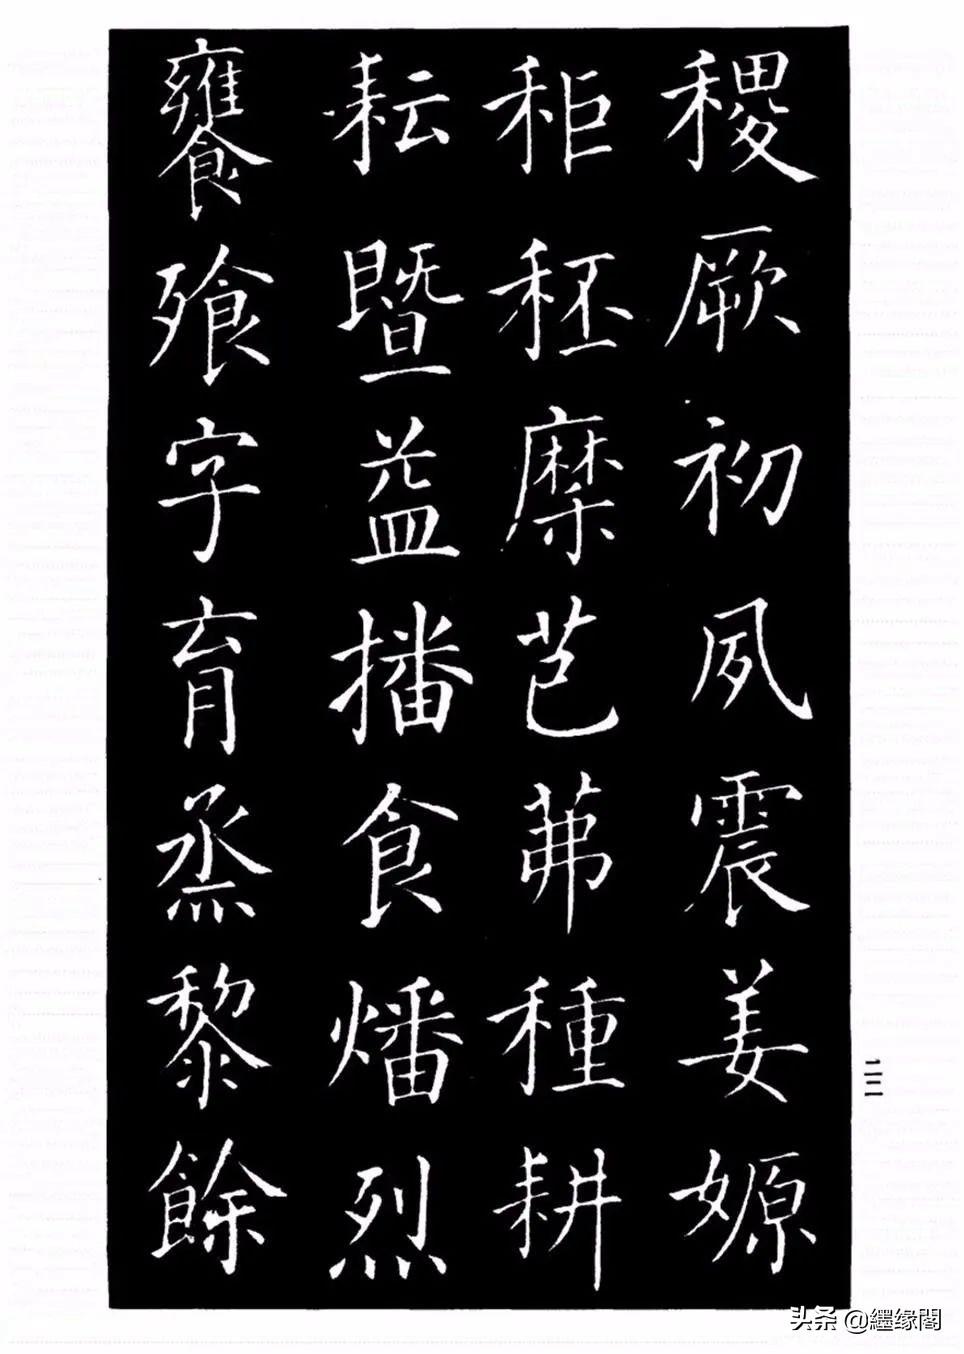 稷厥初夙震姜嫄
秬秠穈芑茀種耕
耘暨益播食燔烈
饔飧字育烝黎餘
二二
头条 @纆缘阁